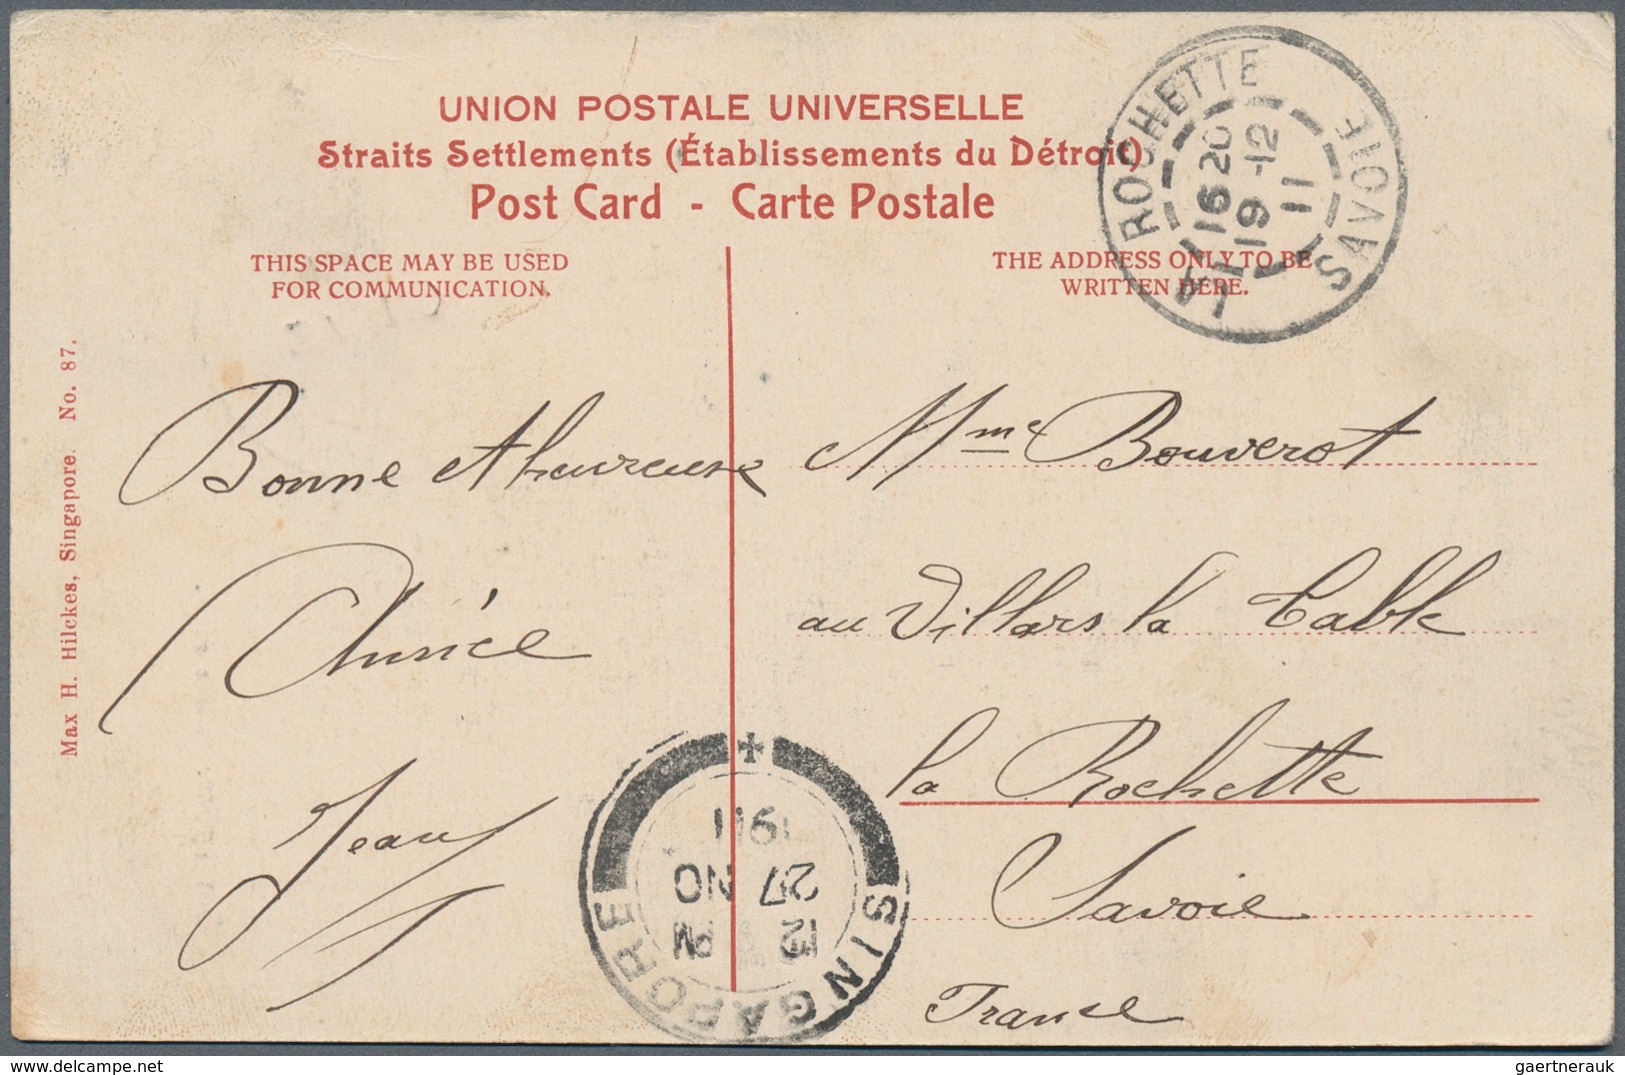 UNION POSTALE UNIVERSELLE
Straits Settlements (Établissements du Détroit)
Post Card - Carte Postale
THIS SPACE MAY BE USED
FOR COMMUNICATION.
THE ADDRESS ONLY TO BE
WRITTEN HERE.
LA ROCHETTE
SAVOIE
16 20
19 -12
11
Max H. Hilckes, Singapore. No. 87.
Bonne et heureuse
Année
Jean
Mme Bouverot
au Villars la Table
la Rochette
Savoie
France
SINGAPORE
12 PM
27 NO
1911
gaertnerauk @ delcampe.net